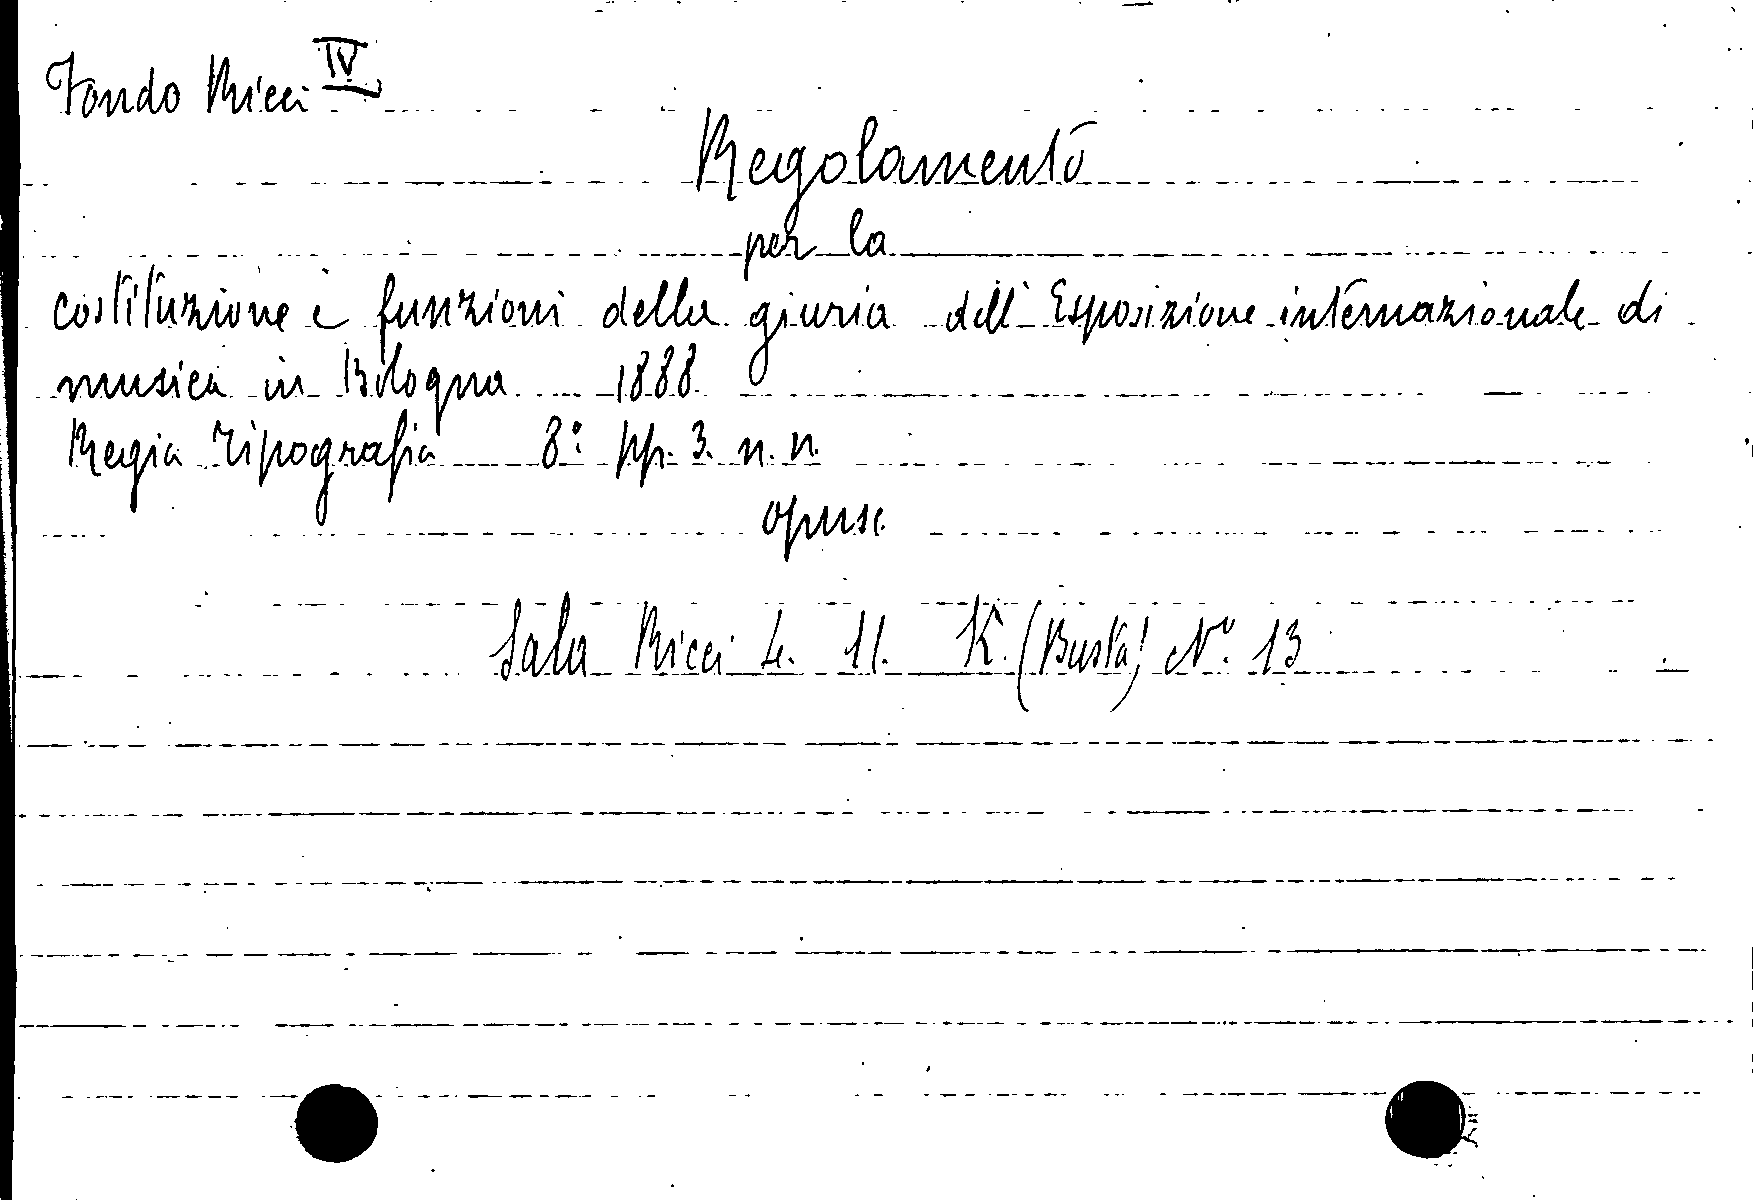 Fondo Ricci IV
Regolamento
per la
costituzione e funzioni della giuria dell' Esposizione internazionale di
musica in Bologna 1888
Regia Tipografia 8º pp. 3. n. n.
opusc.
Sala Ricci 4. 11. K. (Busta) Nº 13